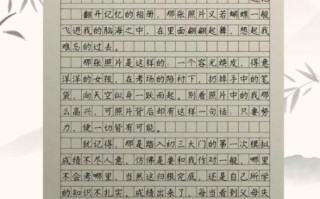 翻开记忆的相册，那张照片又若蝴蝶一般
飞进我的脑海之中，在里面翩翩起舞，想起我
难忘的过去。
那张照片是这样的，一个容光焕发，得意
洋洋的女孩，在考场的陪衬下，扔掉手中的笔
袋，向天空纵身一跃而起。别看照片中的我那
么高兴，可照片背后却有这样一句话，只要努
力，便一切皆有可能。
犹记得，那是踏入初三大门的第一次模拟
成绩不尽人意，仿佛是要和我作对一般，哪里
不会考哪里。当然这归根究底，还是自己所学
的知识不扎实。成绩出来了，每当看到父母失